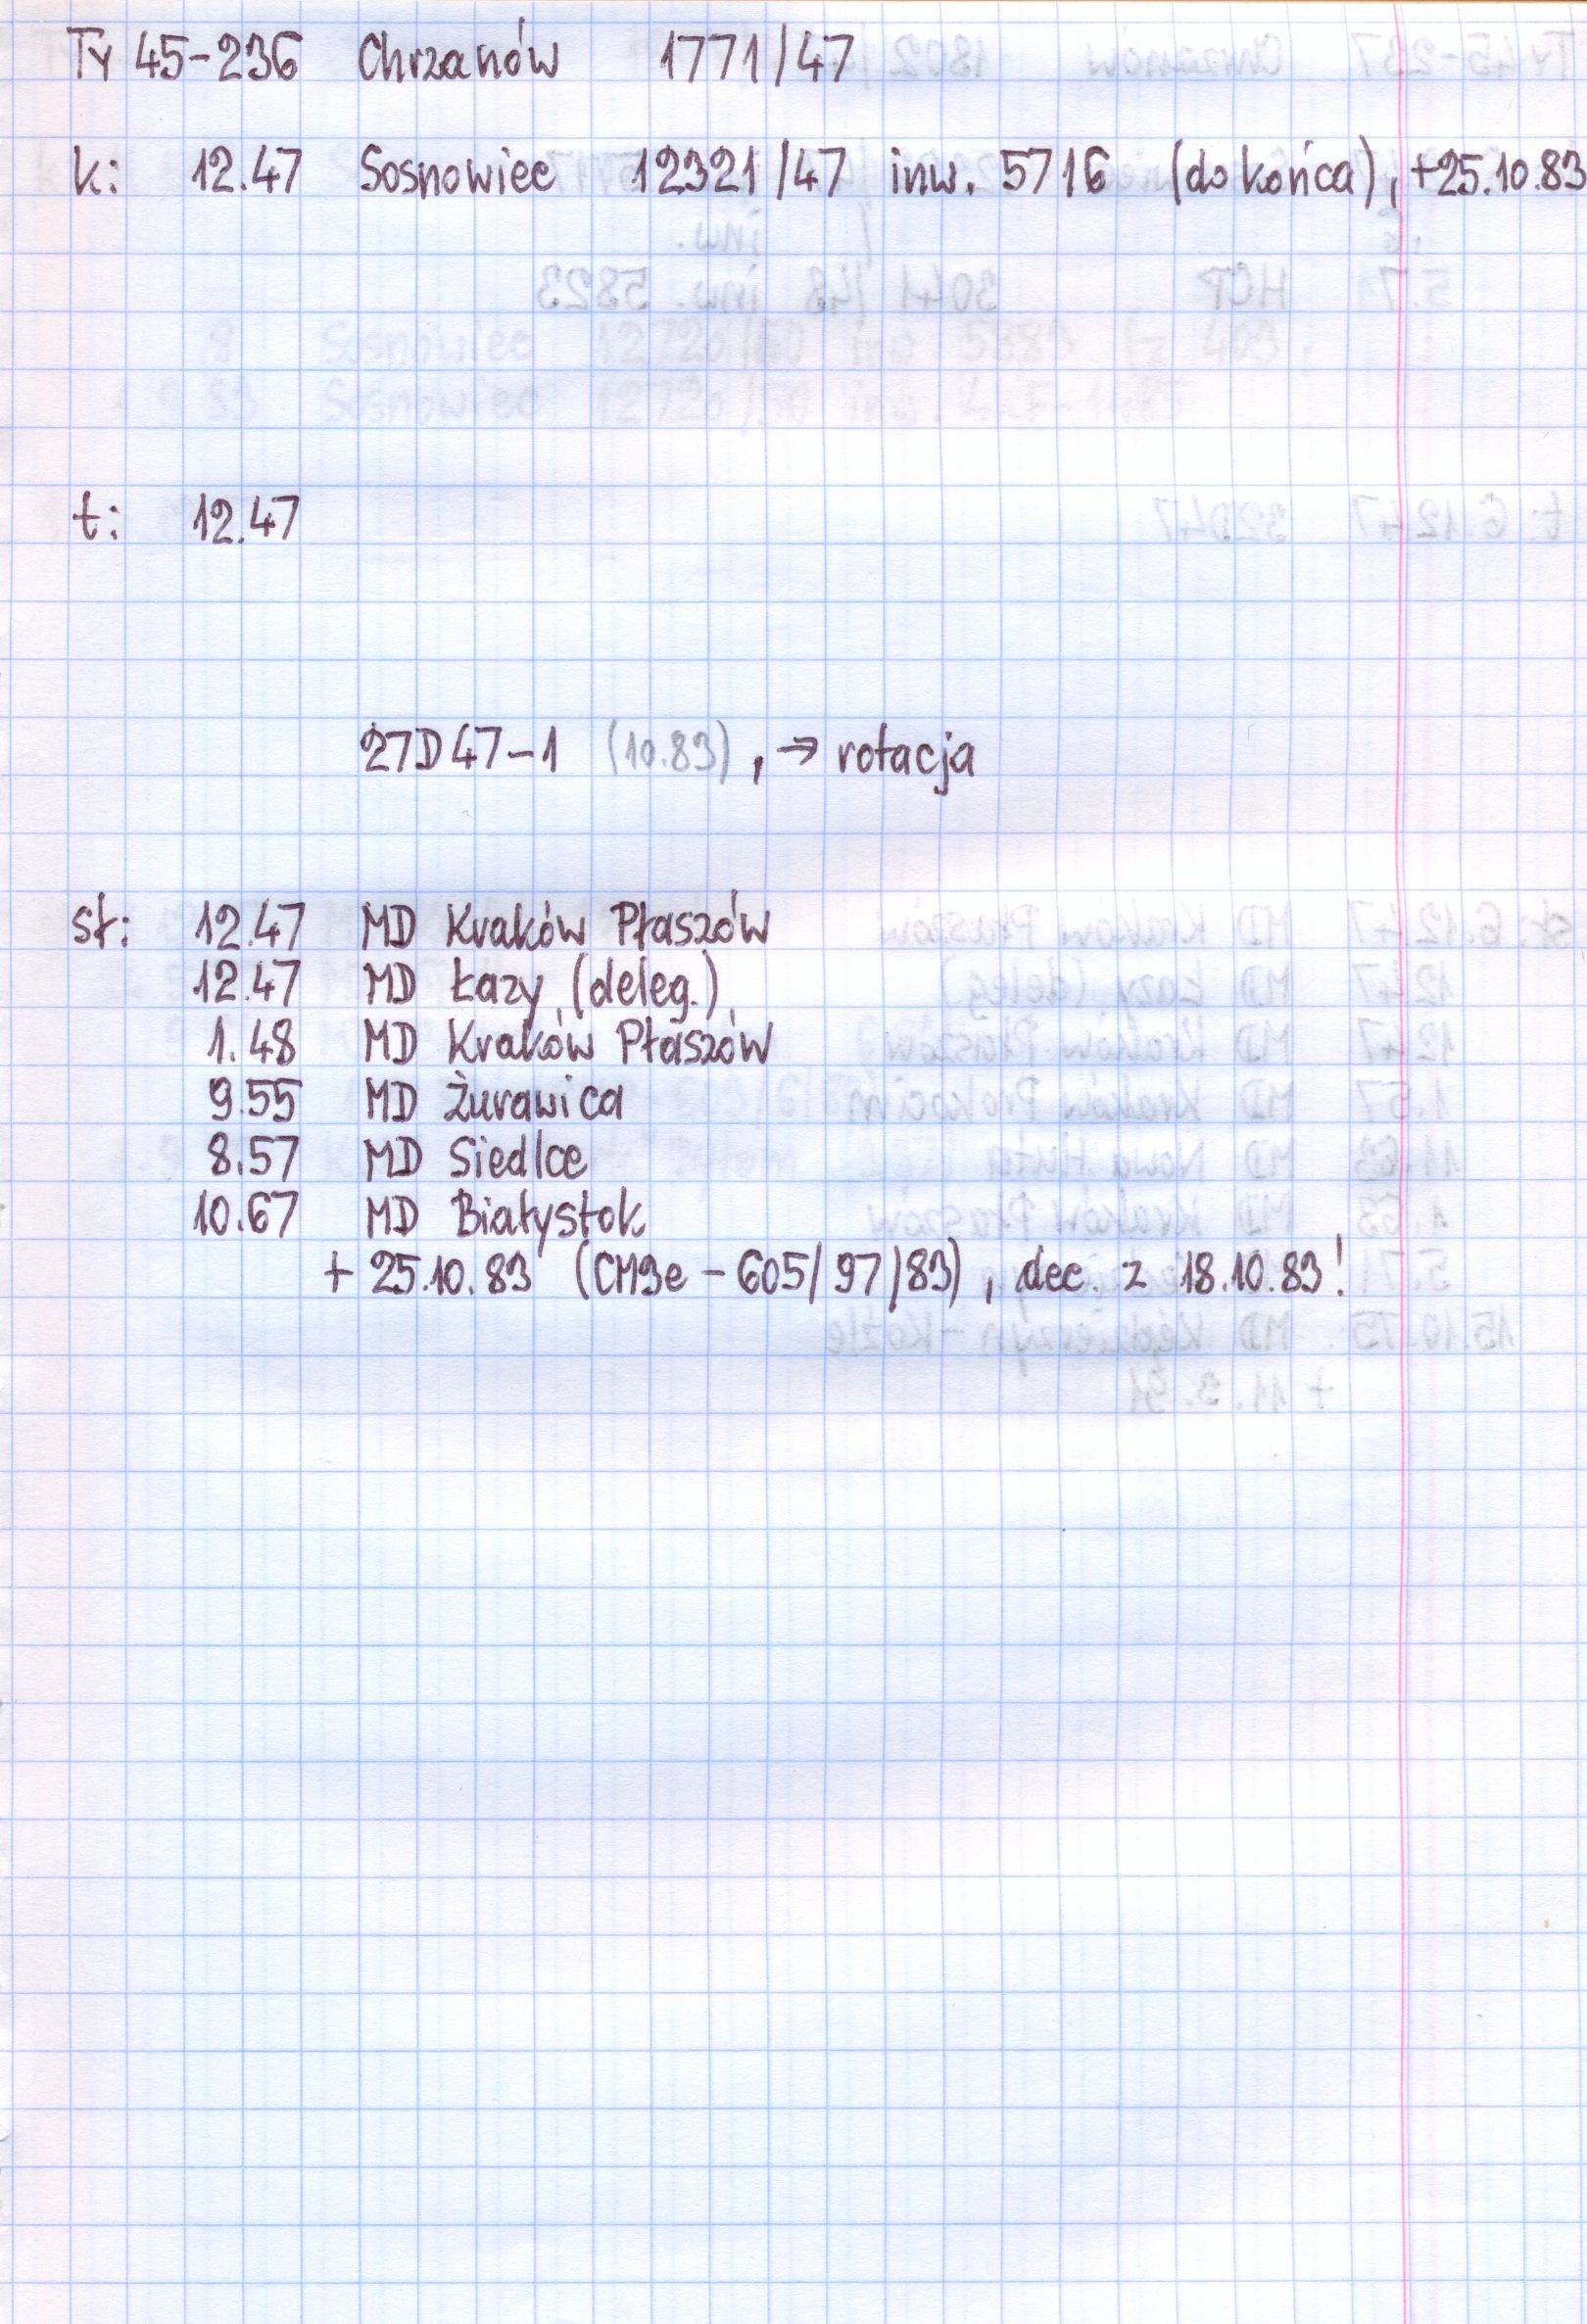 Ty 45-236 Chrzanów 1771/47
k: 12.47 Sosnowiec 12321/47 inw. 5716 (do końca), +25.10.83
t: 12.47
27D47-1 (10.83), → rotacja
st: 12.47 MD Kraków Płaszów
12.47 MD Łazy (deleg.)
1.48 MD Kraków Płaszów
9.55 MD Żurawica
8.57 MD Siedlce
10.67 MD Białystok
+ 25.10.83 (CM9e-605/97/83), dec. z 18.10.83!